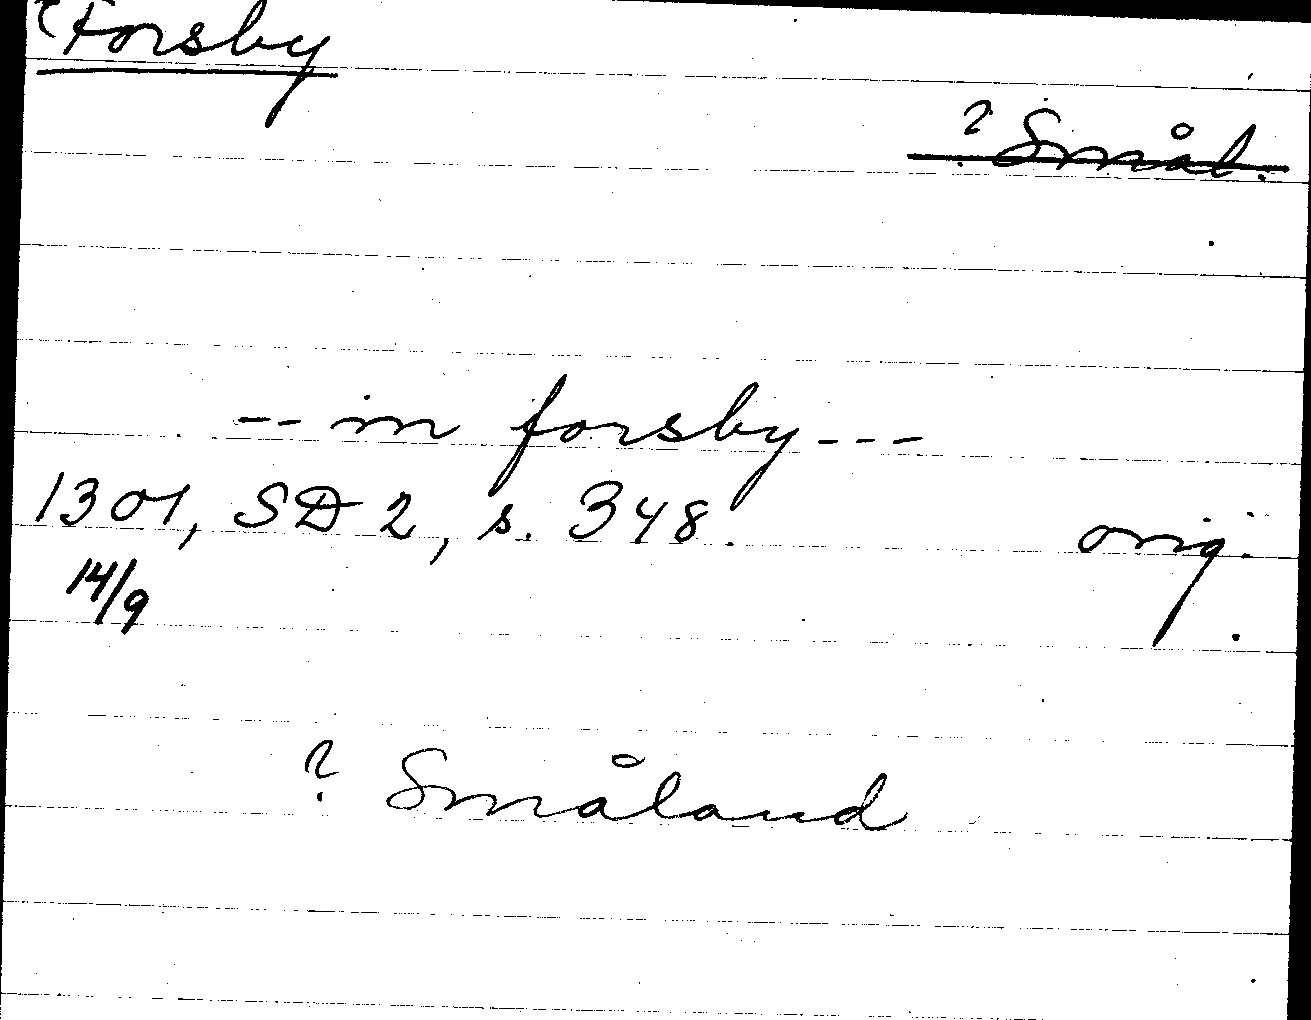 Forsby
? Smål.
-- in forsby ---
1301, SD 2, s. 348. orig.
14/9
? Småland